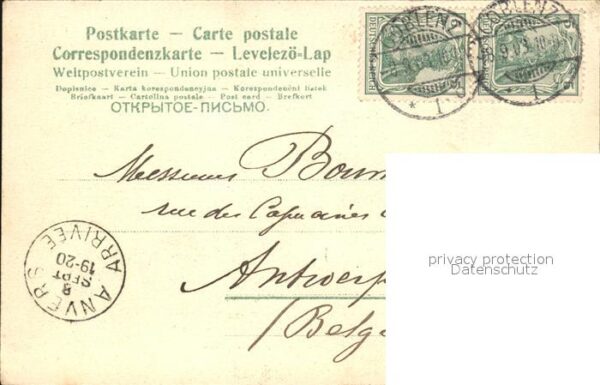 Postkarte — Carte postale
Correspondenzkarte — Levelező-Lap
Weltpostverein — Union postale universelle
Dopisnice — Karta korespondencyjna — Korespondenční lístek
Briefkaart — Cartolina postale — Post card — Brefkort
ОТКРЫТОЕ-ПИСЬМО.
COBLENZ
* 1
COBLENZ
8.9.03.10-11
* 1
Messieurs
rue des Capucines
Antwerp
(Belg
ANVERS
8
SEPT
19-20
ARRIVÉE
privacy protection
Datenschutz